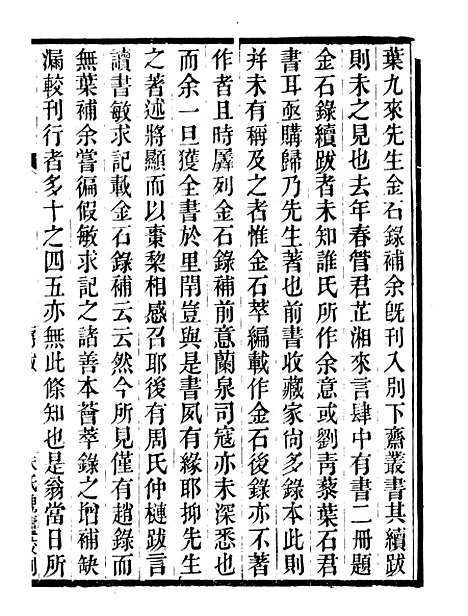 葉九來先生金石錄補余旣刊入別下齋叢書其續跋
則未之見也去年春管君芷湘來言肆中有書二冊題
金石錄續跋者未知誰氏所作余意或劉靑藜葉石君
書耳亟購歸乃先生著也前書收藏家尙多錄本此則
并未有稱及之者惟金石萃編載作金石後錄亦不著
作者且時羼列金石錄補前意蘭泉司寇亦未深悉也
而余一旦獲全書於里閈豈與是書夙有緣耶抑先生
之著述將顯而以棗棃相感召耶後有周氏仲槤跋言
讀書敏求記載金石錄補云云然今所見僅有趙錄而
無葉補余嘗徧假敏求記之諸善本薈萃錄之增補缺
漏較刊行者多十之四五亦無此條知也是翁當日所